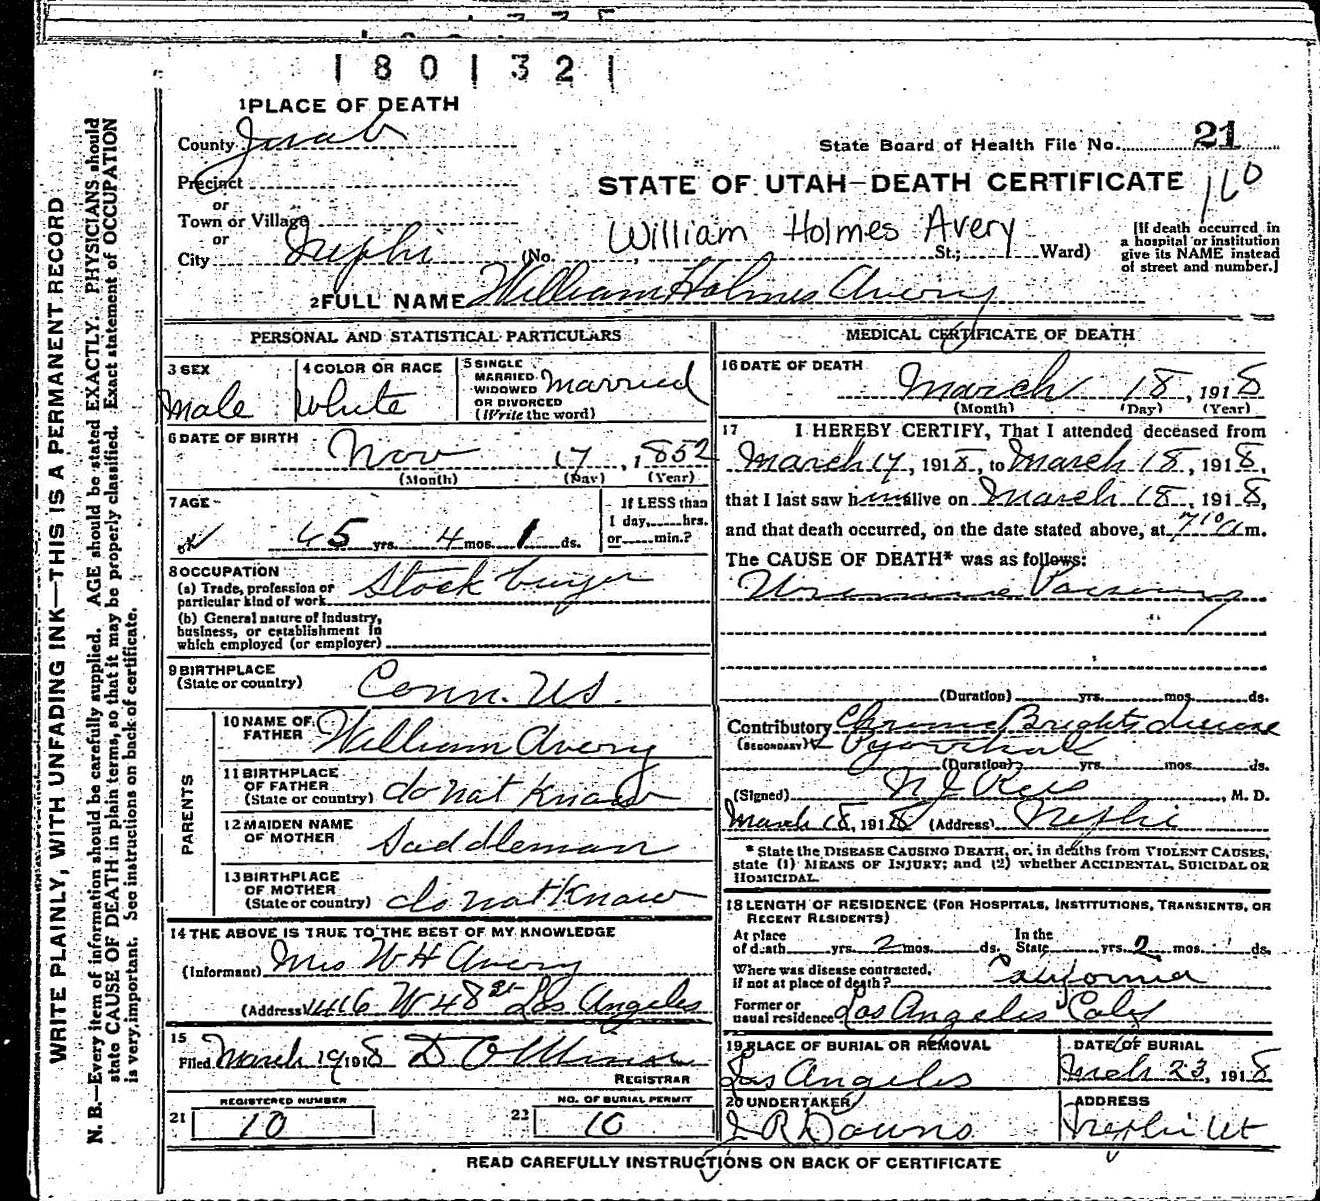 1801321
1 PLACE OF DEATH
County Juab
State Board of Health File No. 21
Precinct
or
STATE OF UTAH—DEATH CERTIFICATE
110
Town or Village
or
William Holmes Avery
City Nephi (No. St.; Ward)
[If death occurred in
a hospital or institution
give its NAME instead
of street and number.]
2 FULL NAME William Holmes Avery
PERSONAL AND STATISTICAL PARTICULARS
3 SEX
Male
4 COLOR OR RACE
White
5 SINGLE
MARRIED
WIDOWED
OR DIVORCED
(Write the word)
Married
6 DATE OF BIRTH
Nov 17, 1852
(Month) (Day) (Year)
7 AGE
65 yrs. 4 mos. 1 ds.
If LESS than
1 day, hrs.
or min.?
8 OCCUPATION
(a) Trade, profession or
particular kind of work Stock buyer
(b) General nature of industry,
business, or establishment in
which employed (or employer)
9 BIRTHPLACE
(State or country) Conn. US.
PARENTS
10 NAME OF
FATHER William Avery
11 BIRTHPLACE
OF FATHER
(State or country) do not know
12 MAIDEN NAME
OF MOTHER Saddleman
13 BIRTHPLACE
OF MOTHER
(State or country) do not know
14 THE ABOVE IS TRUE TO THE BEST OF MY KNOWLEDGE
(Informant) Mrs W H Avery
(Address) 1416 W 48 st Los Angeles
15
Filed March 19 1918
REGISTRAR
REGISTERED NUMBER
21 10
NO. OF BURIAL PERMIT
22 10
MEDICAL CERTIFICATE OF DEATH
16 DATE OF DEATH
March 18, 1918
(Month) (Day) (Year)
17 I HEREBY CERTIFY, That I attended deceased from
March 17, 1918, to March 18, 1918,
that I last saw him alive on March 18, 1918,
and that death occurred, on the date stated above, at 7 10 a m.
The CAUSE OF DEATH* was as follows:
(Duration) yrs. mos. ds.
Contributory Chronic Brights disease
(SECONDARY)
(Duration) yrs. mos. ds.
(Signed) , M. D.
March 18, 1918 (Address) Nephi
* State the DISEASE CAUSING DEATH, or, in deaths from VIOLENT CAUSES,
state (1) MEANS OF INJURY; and (2) whether ACCIDENTAL, SUICIDAL OR
HOMICIDAL.
18 LENGTH OF RESIDENCE (FOR HOSPITALS, INSTITUTIONS, TRANSIENTS, OR
RECENT RESIDENTS)
At place
of death yrs. 2 mos. ds. In the
State yrs. 2 mos. ds.
Where was disease contracted,
if not at place of death? California
Former or
usual residence Los Angeles Calif
19 PLACE OF BURIAL OR REMOVAL
Los Angeles
DATE OF BURIAL
Mch 23, 1918
20 UNDERTAKER
J R Downs
ADDRESS
Nephi Ut
READ CAREFULLY INSTRUCTIONS ON BACK OF CERTIFICATE
WRITE PLAINLY, WITH UNFADING INK—THIS IS A PERMANENT RECORD
N. B.—Every item of information should be carefully supplied. AGE should be stated EXACTLY. PHYSICIANS should
state CAUSE OF DEATH in plain terms, so that it may be properly classified. Exact statement of OCCUPATION
is very important. See instructions on back of certificate.